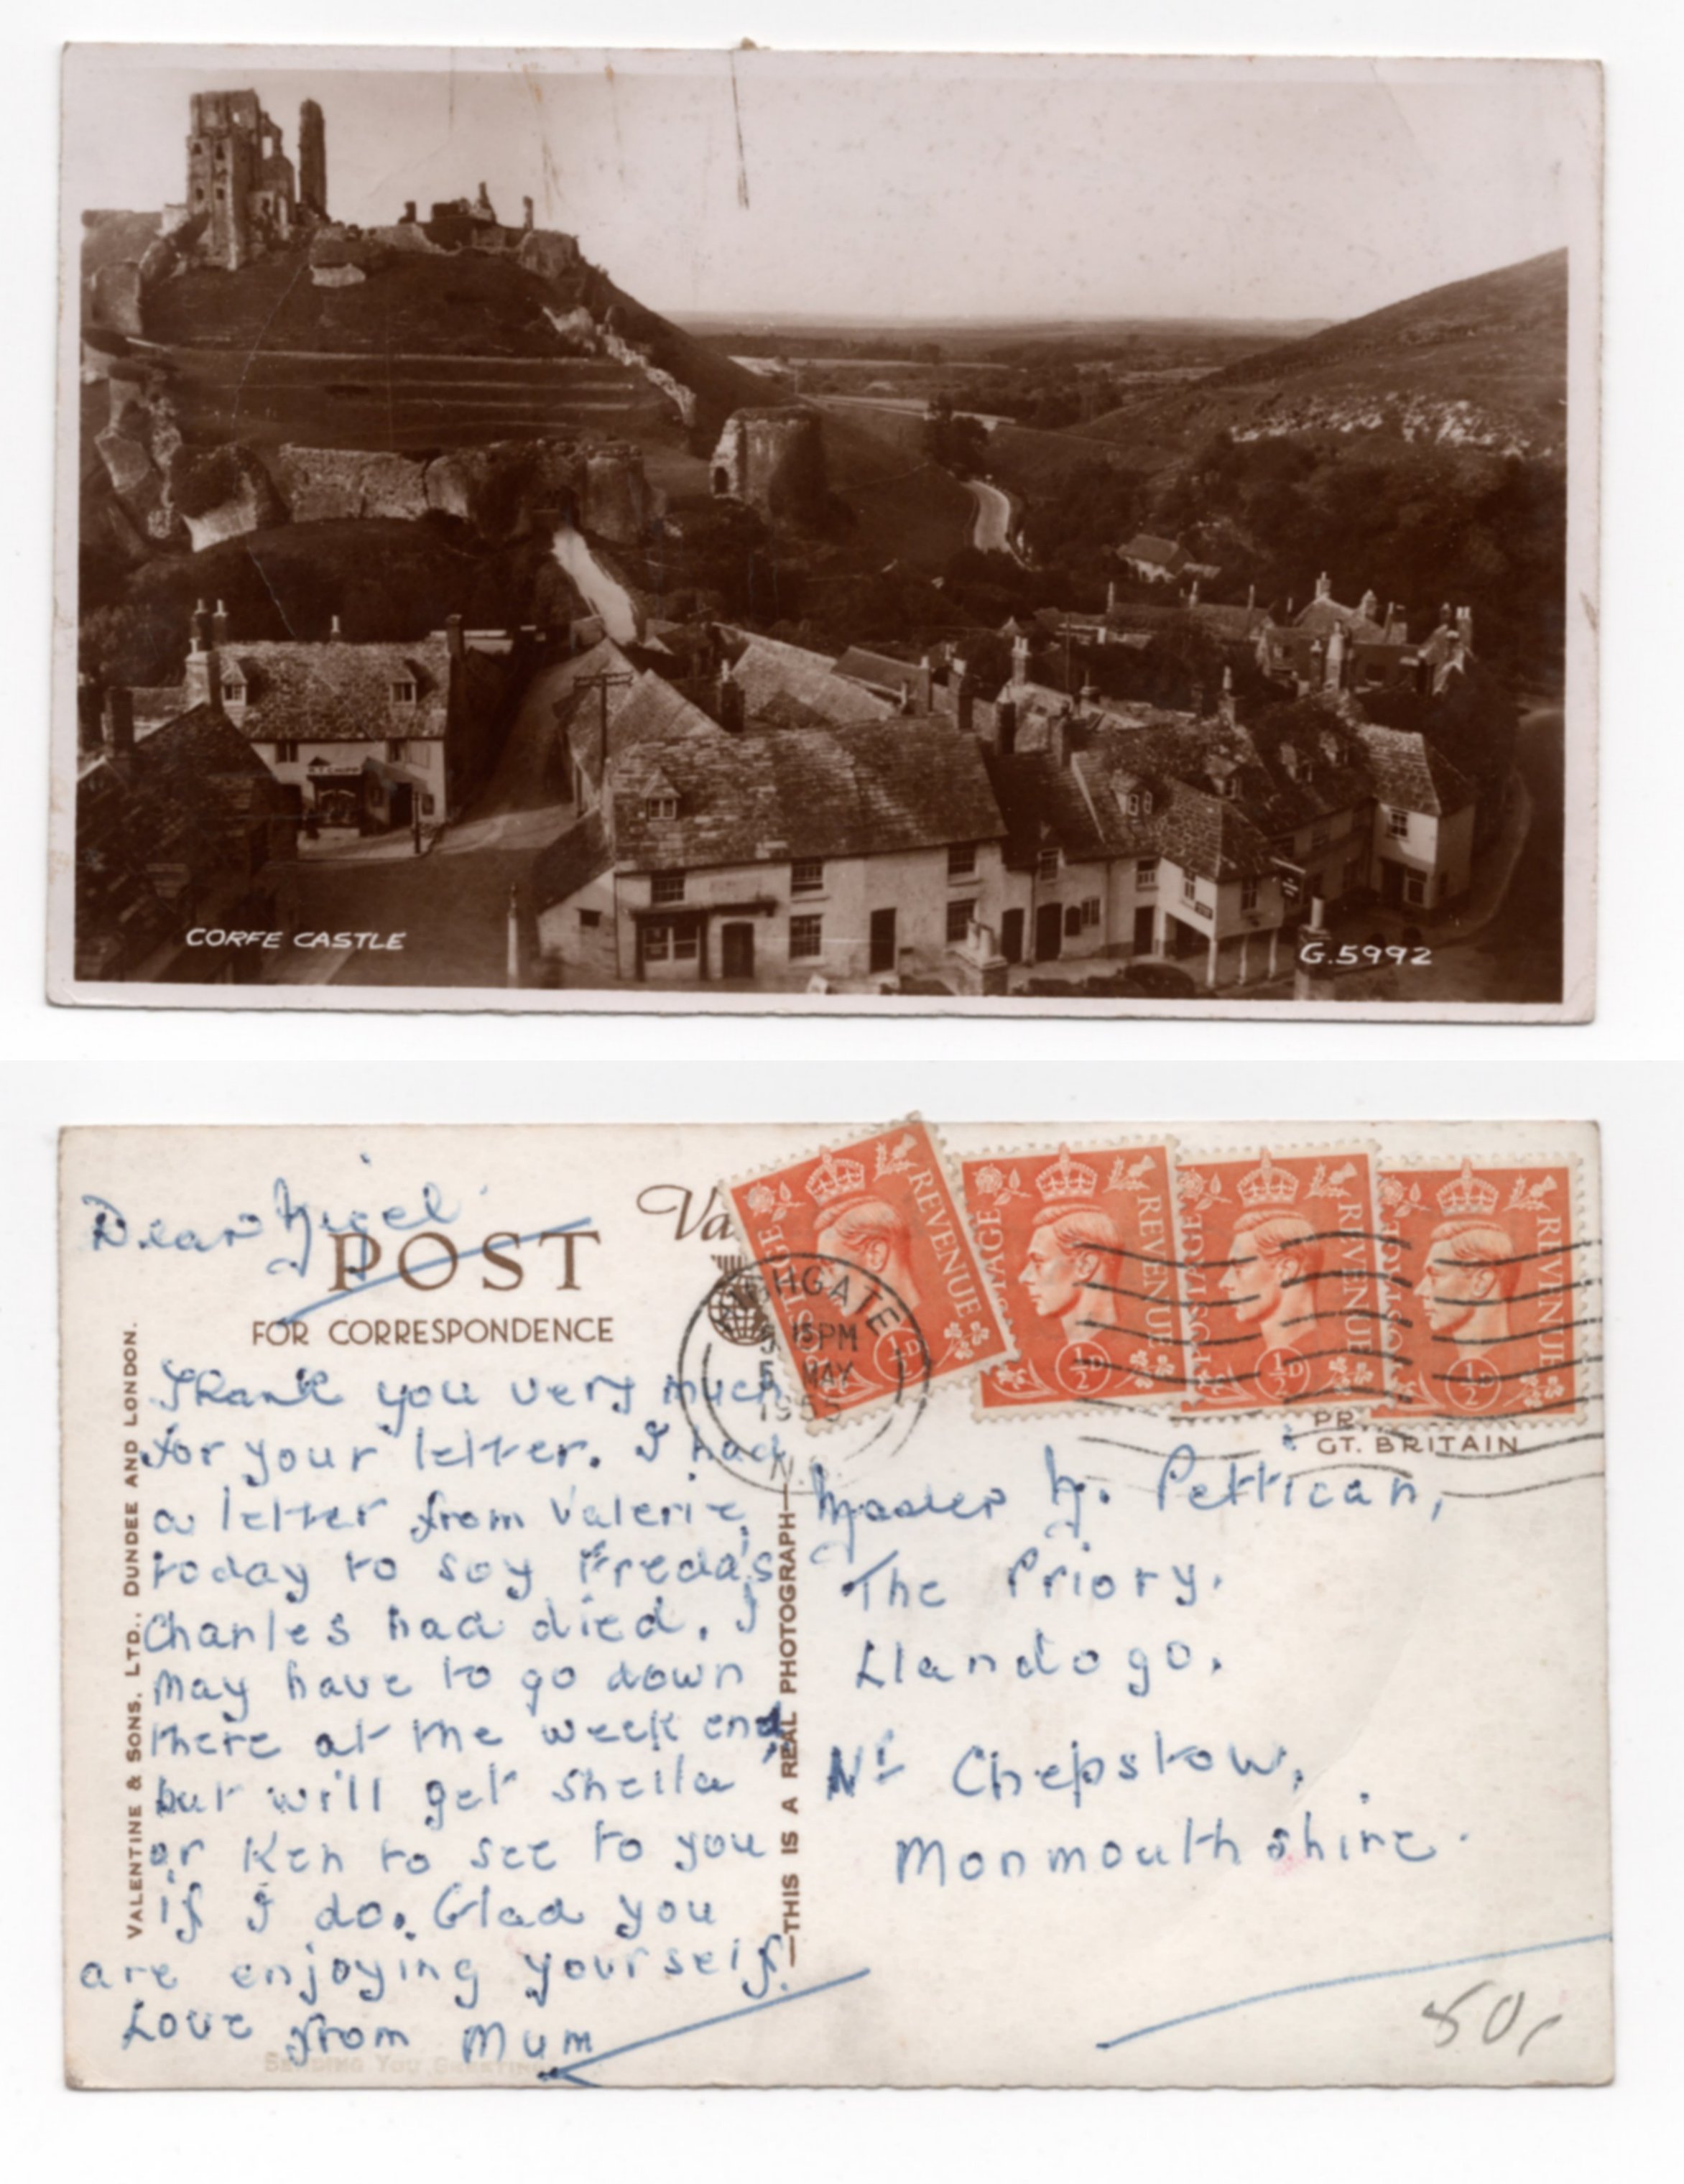 CORFE CASTLE
G.5992
Dear Nigel
POST
FOR CORRESPONDENCE
Thank you very much
for your letter. I had
a letter from Valerie,
today to say Freda's
Charles had died. I
may have to go down
there at the week end,
but will get Sheila
or Ken to see to you
if I do. Glad you
are enjoying yourself.
Love from Mum
SENDING YOU GREETINGS
VALENTINE & SONS. LTD., DUNDEE AND LONDON.
THIS IS A REAL PHOTOGRAPH
POSTAGE REVENUE
½D
POSTAGE REVENUE
½D
POSTAGE REVENUE
½D
POSTAGE REVENUE
½D
15PM
5 MAY
GT. BRITAIN
Master N. Pettican,
The Priory.
Llandogo.
Nr Chepstow.
Monmouthshire.
50